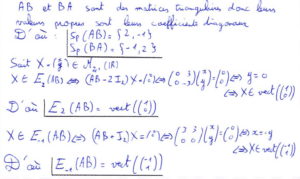 AB et BA sont des matrices triangulaires donc leurs
valeurs propres sont leurs coefficients diagonaux
D'où : Sp(AB) = {2, -1}
Sp(BA) = {-1, 2}
Soit X = (x y) ∈ M₂,₁(ℝ)
X ∈ E₂(AB) ⇔ (AB - 2I₂)X = (0 0) ⇔ (0 3 0 -3)(x y) = (0 0) ⇔ y = 0
⇔ X ∈ vect((1 0))
D'où E₂(AB) = vect((1 0))
X ∈ E₋₁(AB) ⇔ (AB + I₂)X = (0 0) ⇔ (3 3 0 0)(x y) = (0 0) ⇔ x = -y
⇔ X ∈ vect((-1 1))
D'où E₋₁(AB) = vect((-1 1))